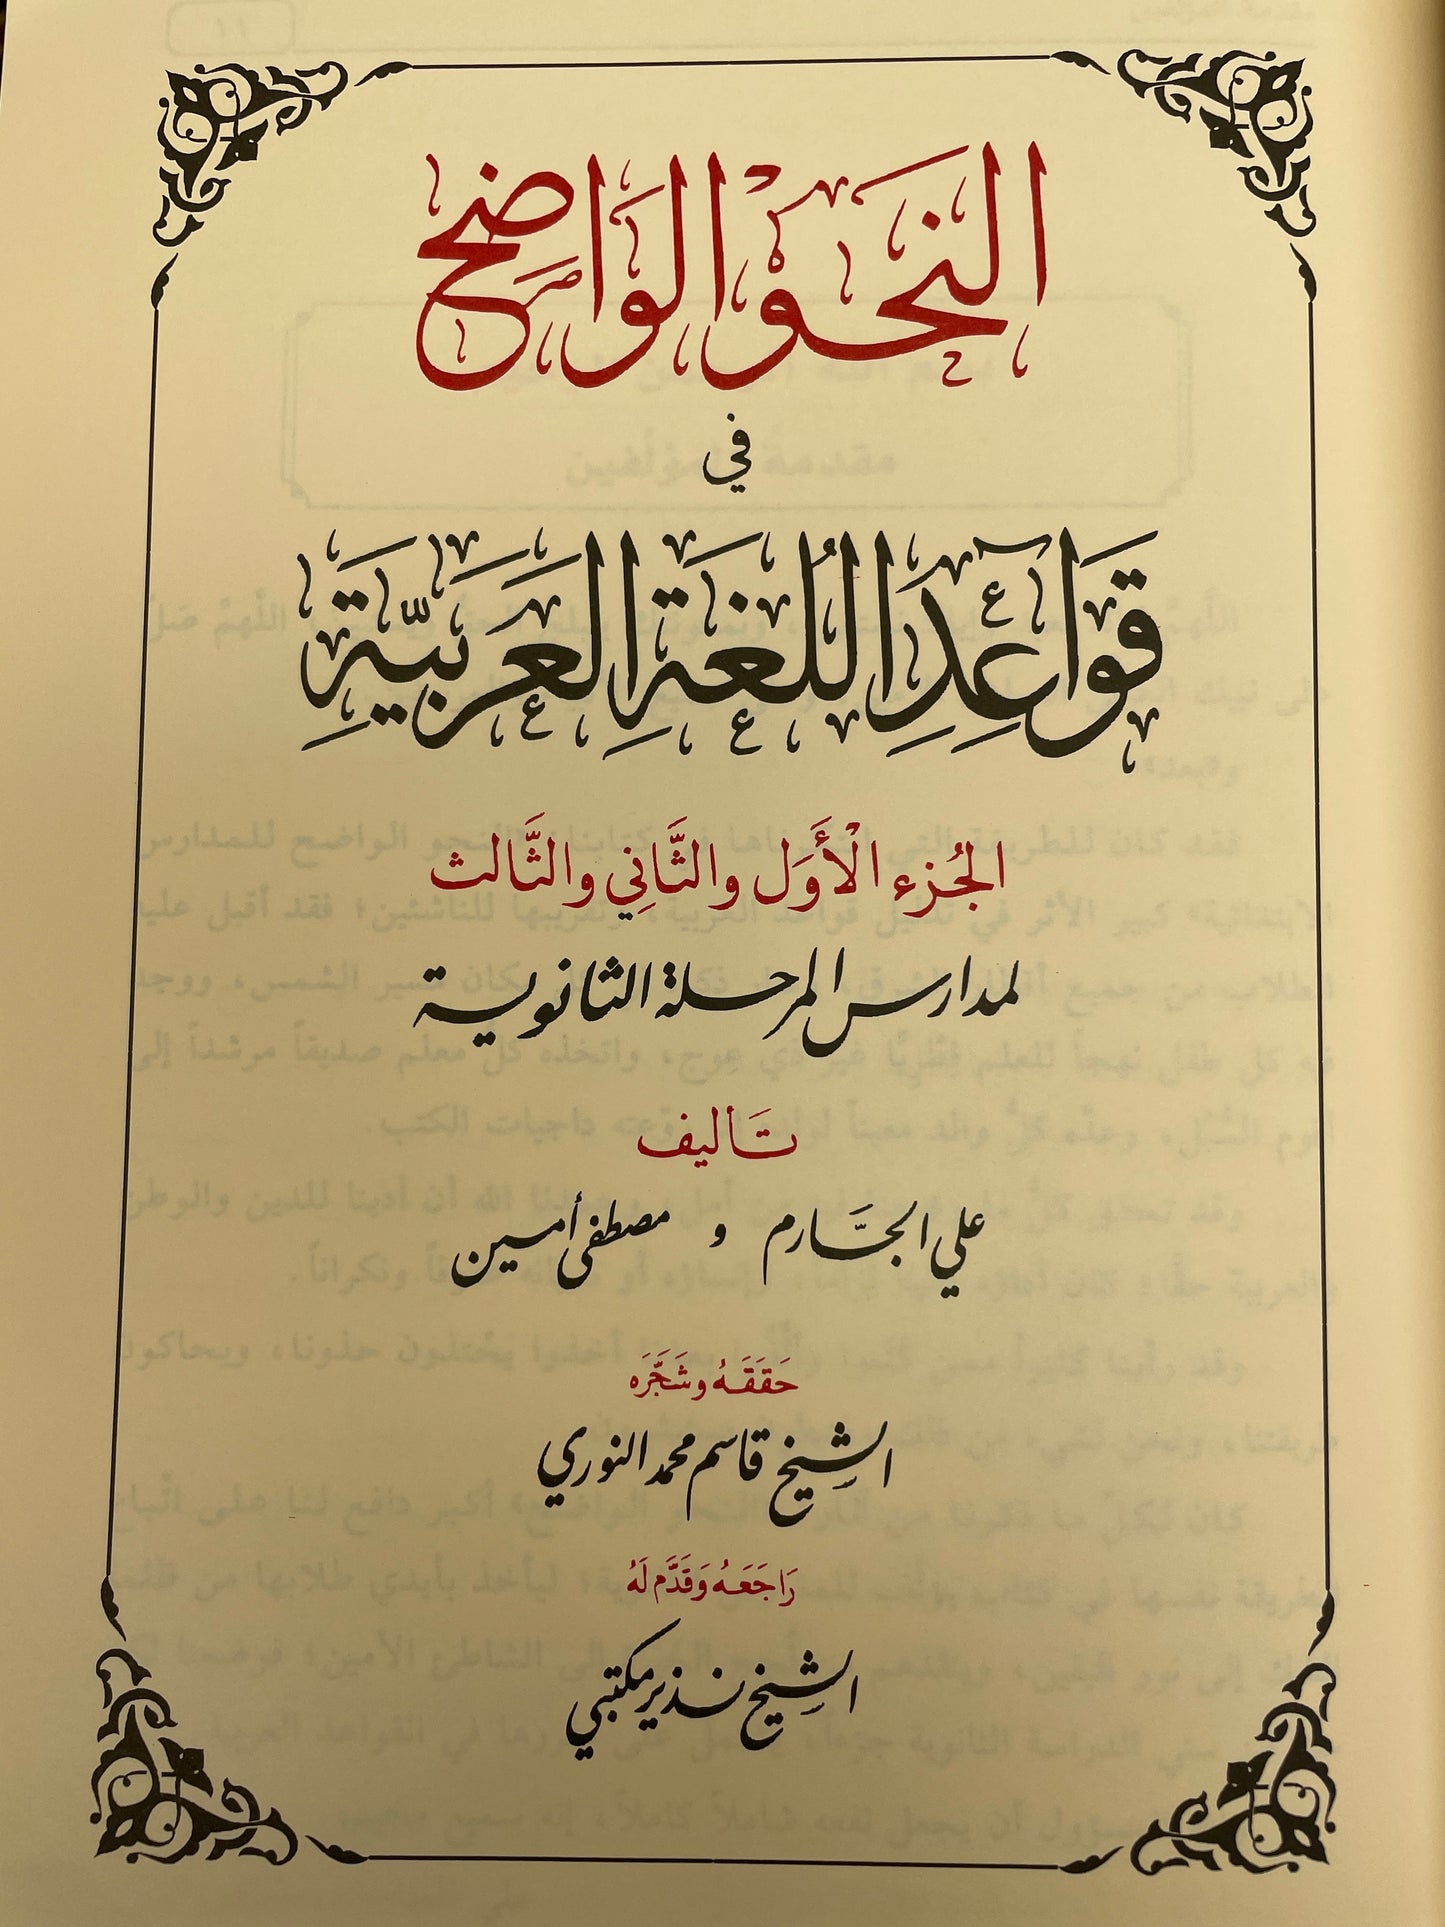 النَّحْوُ الْوَاضِحُ
في
قَوَاعِدِ اللُّغَةِ الْعَرَبِيَّةِ
الجُزء الْأَوَّل والثَّاني والثَّالث
لمدارس المرحلة الثانوية
تَأليف
علي الجَارم و مصطفى أمين
حَقَقَهُ وشَجَّرَه
الشيخ قاسم محمد النوري
رَاجَعَهُ وَقَدَّم لَهُ
الشيخ نذير مكتبي